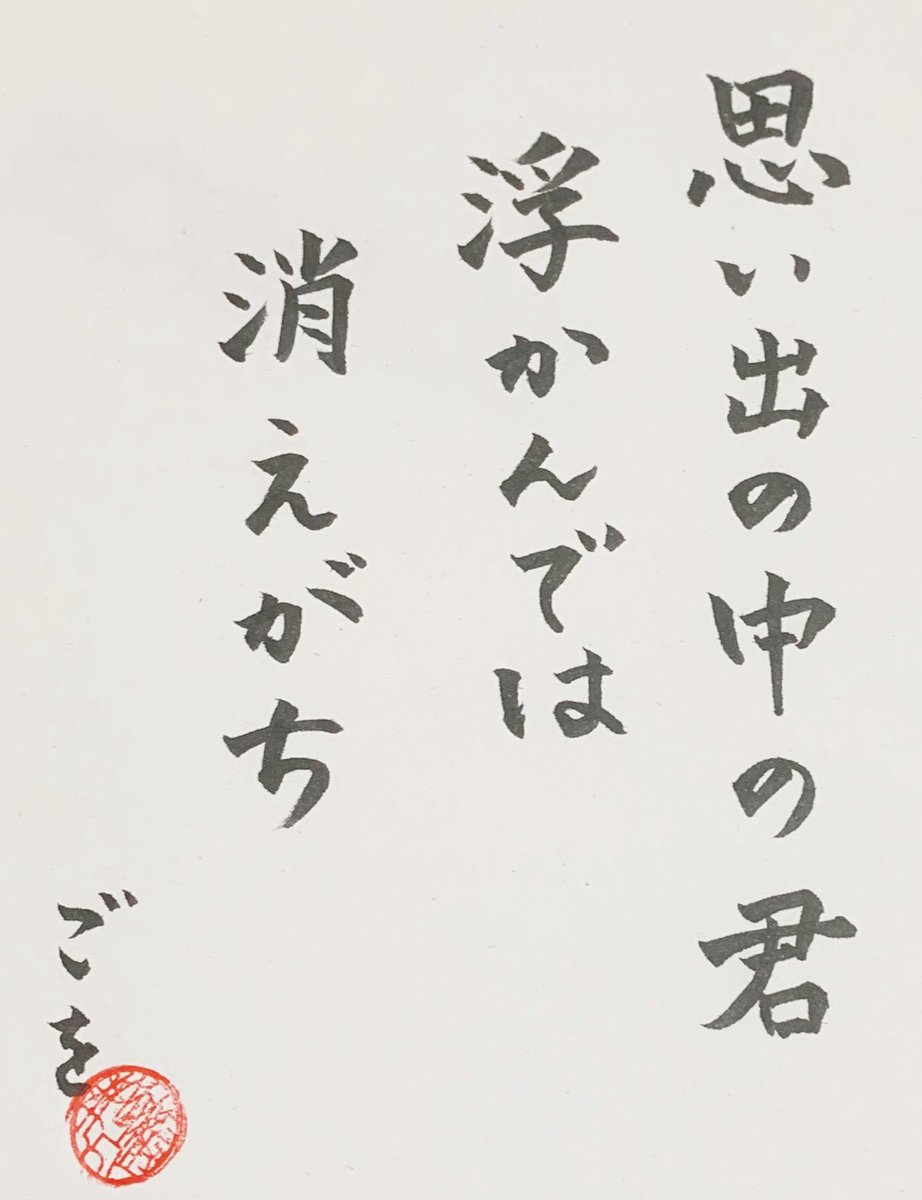 思い出の中の君
浮かんでは
消えがち
ごを